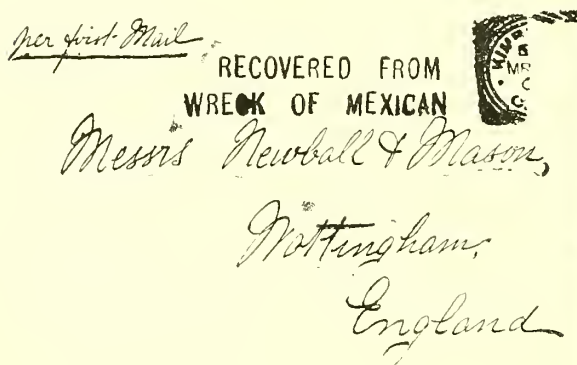 per first Mail
RECOVERED FROM
WRECK OF MEXICAN
Messrs Newball & Mason,
Nottingham,
England